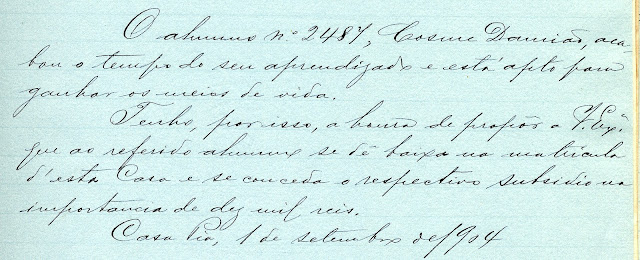 O alumno nº 2487, Cosme Damião, aca
bou o tempo do seu aprendizado e está apto para
ganhar os meios de vida.
Tenho, por isso, a honra de propôr a V. Exª
que ao referido alumno se dê baixa na matricula
d'esta Casa e se conceda o respectivo subsidio na
importancia de dez mil reis.
Casa Pia, 1 de setembro de 1904